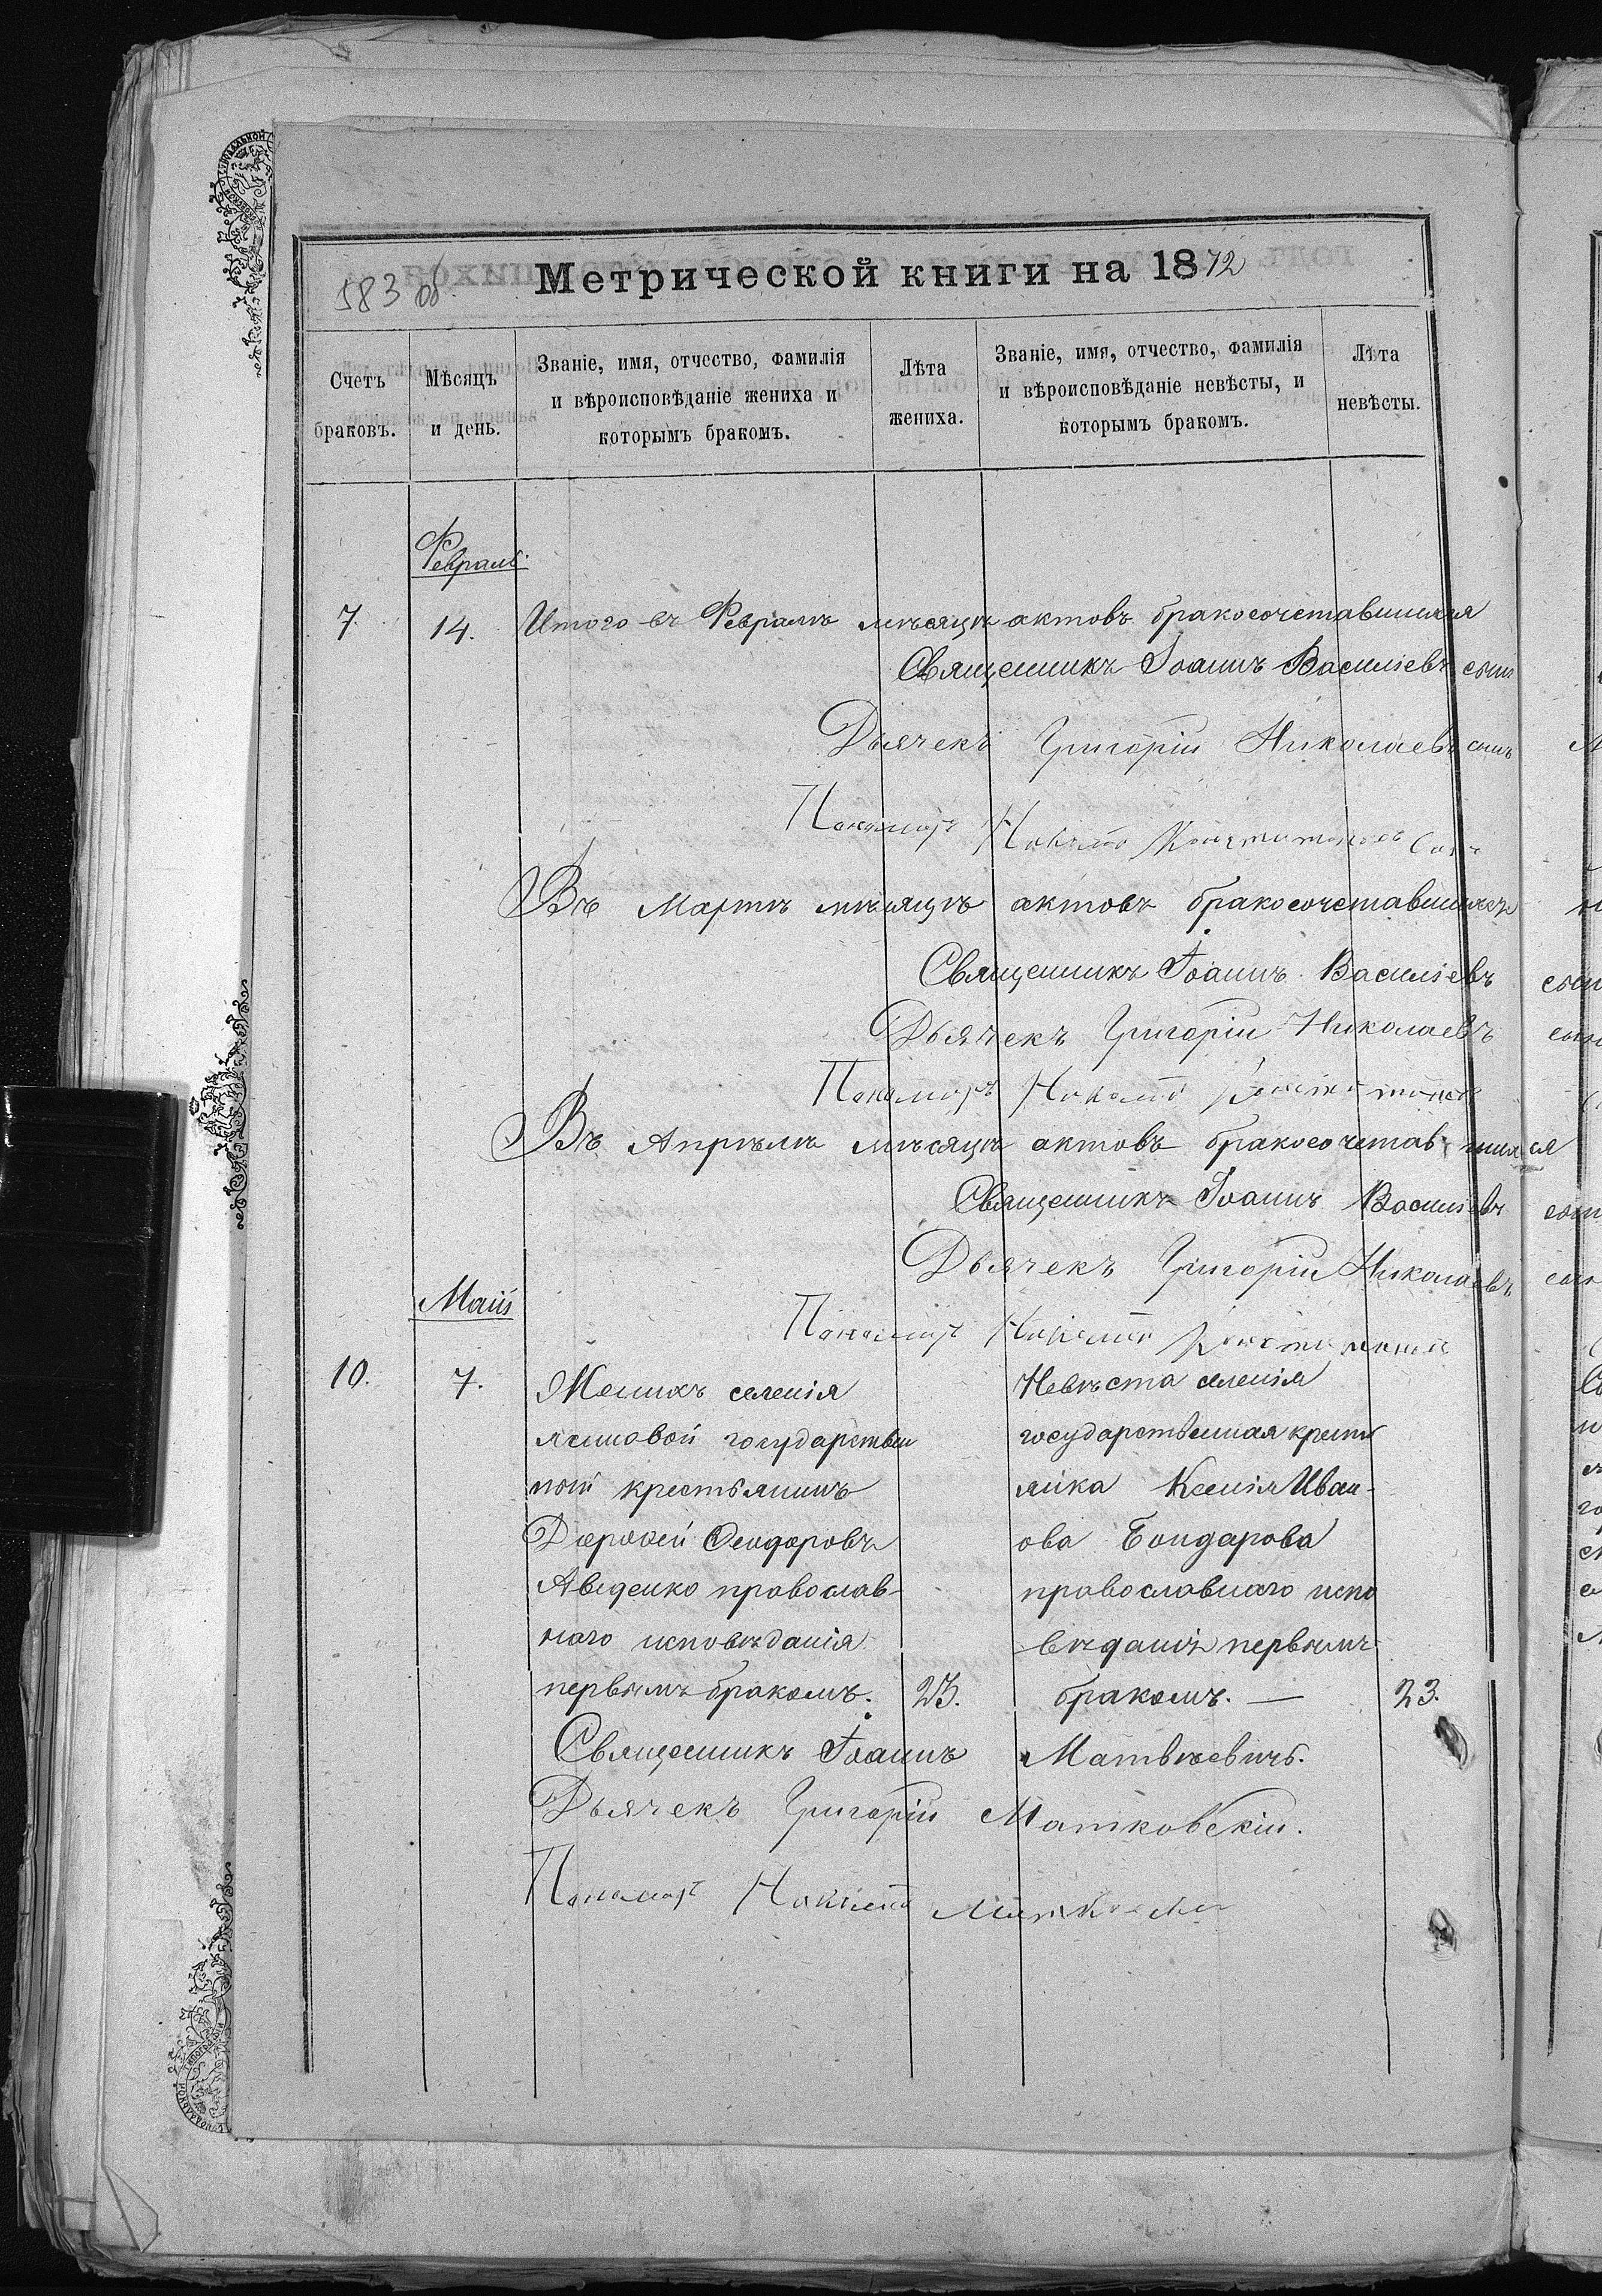 583 об
Метрической книги на 1872
Счетъ браковъ.
Мѣсяцъ и день.
Званіе, имя, отчество, фамилія и вѣроисповѣданіе жениха и которымъ бракомъ.
Лѣта жениха.
Званіе, имя, отчество, фамилія и вѣроисповѣданіе невѣсты, и которымъ бракомъ.
Лѣта невѣсты.
Февраль
7. 14. Итого въ Февралѣ мѣсяцѣ актовъ бракосочетавшихся
Священникъ Іоаннъ Василіевъ сынъ
Дьячекъ Григорій Николаевъ сынъ
Пономарь
Въ Мартѣ мѣсяцѣ актовъ бракосочетавшихся
Священникъ Іоаннъ Василіевъ
Дьячекъ Григорій Николаевъ
Пономарь
Въ Апрѣлѣ мѣсяцѣ актовъ бракосочетавшихся
Священникъ Іоаннъ Василіевъ
Дьячекъ Григорій Николаевъ
Май
Пономарь
10. 7.
Женихъ селенія
государствен
ный крестьянинъ
Феодоровъ
Авдеенко православ-
наго исповѣданія
первымъ бракомъ. 23.
Невѣста селенія
государственная крестья
янка Ксенія Иван-
ова Бондарова
православнаго испо
вѣданія первымъ
бракомъ. — 23.
Священникъ Іоаннъ Матвѣевичъ.
Дьячекъ Григорій Матковскій.
Пономарь